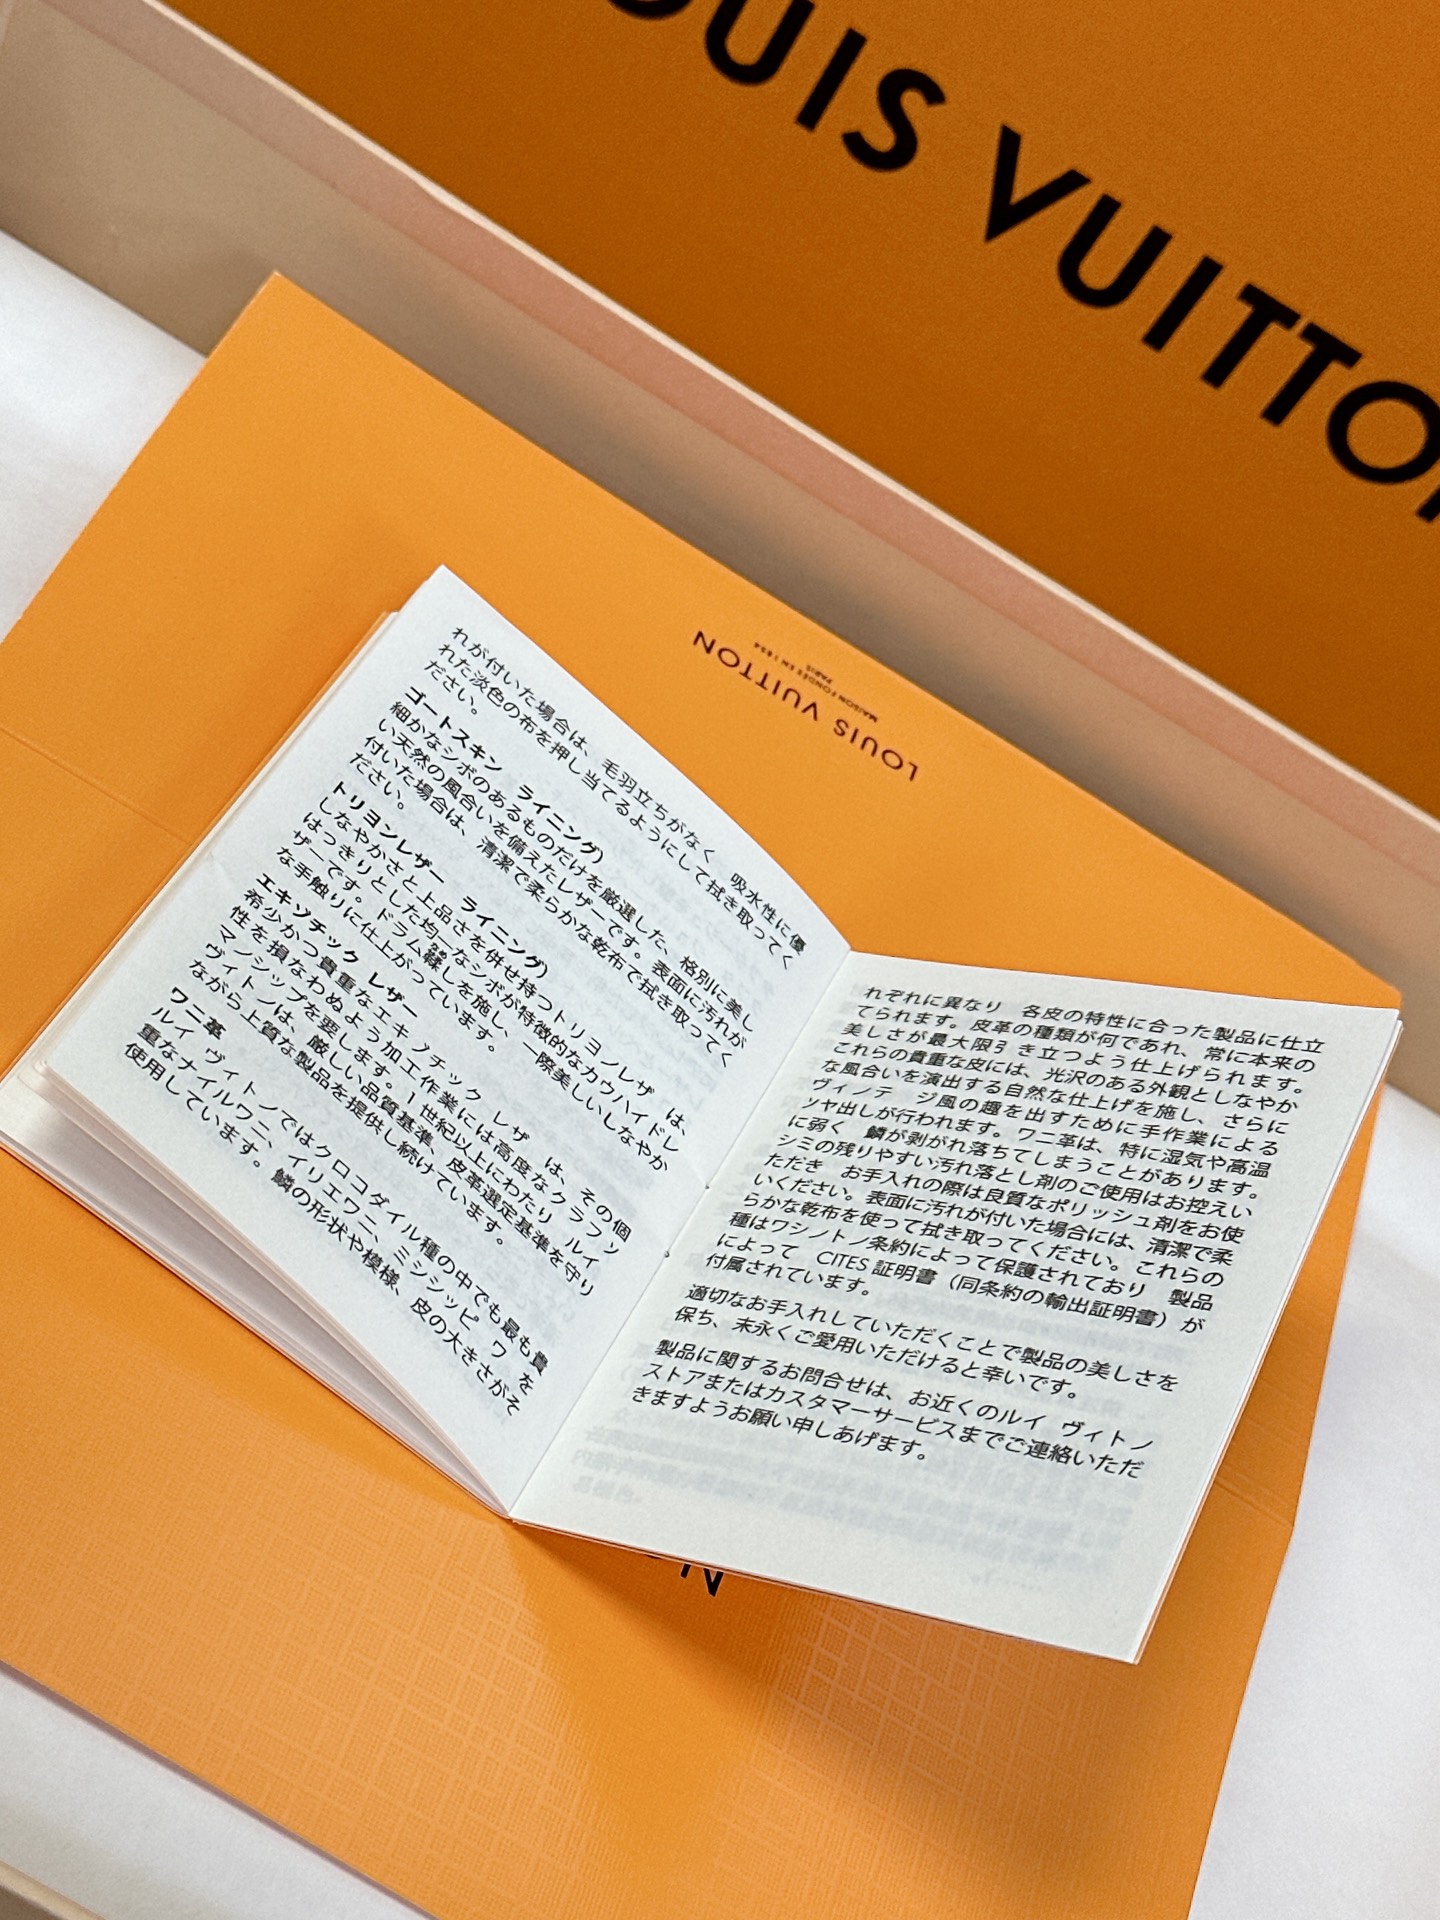 OUIS VUITTON
LOUIS VUITTON
MAISON FONDÉE EN 1854
PARIS
れが付いた場合は、毛羽立ちがなく 吸水性に優
れた淡色の布を押し当てるようにして拭き取ってく
ださい。
ゴートスキン ライニング)
細かなシボのあるものだけを厳選した、格別に美し
い天然の風合いを備えたレザーです。表面に汚れが
付いた場合は、清潔で柔らかな乾布で拭き取ってく
ださい。
トリヨンレザー ライニング)
しなやかさと上品さを併せ持つトリヨノレザ は、
はっきりとした均一なシボが特徴的なカウハイドレ
ザーです。ドラム鞣しを施し、一際美しいしなやか
な手触りに仕上がっています。
エキゾチック レザー
希少かつ貴重なエキノチック レザ は、その個
性を損なわぬよう加工作業には高度なクラフツ
マノシップを要します。1世紀以上にわたり ルイ
ヴィトノは、厳しい品質基準、皮革選定基準を守り
ながら上質な製品を提供し続けています。
ワニ革
ルイ ヴィトノではクロコダイル種の中でも最も貴
重なナイルワニ、イリエワニ、ミシシッピ ワ を
使用しています。鱗の形状や模様、皮の大きさがそ
れぞれに異なり 各皮の特性に合った製品に仕立
てられます。皮革の種類が何であれ、常に本来の
美しさが最大限引き立つよう仕上げられます。
これらの貴重な皮には、光沢のある外観としなやか
な風合いを演出する自然な仕上げを施し、さらに
ヴィノテ ジ風の趣を出すために手作業による
ツヤ出しが行われます。ワニ革は、特に湿気や高温
に弱く 鱗が剥がれ落ちてしまうことがあります。
シミの残りやすい汚れ落とし剤のご使用はお控えい
ただき お手入れの際は良質なポリッシュ剤をお使
いください。表面に汚れが付いた場合には、清潔で柔
らかな乾布を使って拭き取ってください。これらの
種はワシノトノ条約によって保護されており 製品
によって CITES 証明書（同条約の輸出証明書）が
付属されています。
適切なお手入れしていただくことで製品の美しさを
保ち、末永くご愛用いただけると幸いです。
製品に関するお問合せは、お近くのルイ ヴィトノ
ストアまたはカスタマーサービスまでご連絡いただ
きますようお願い申しあげます。
ON